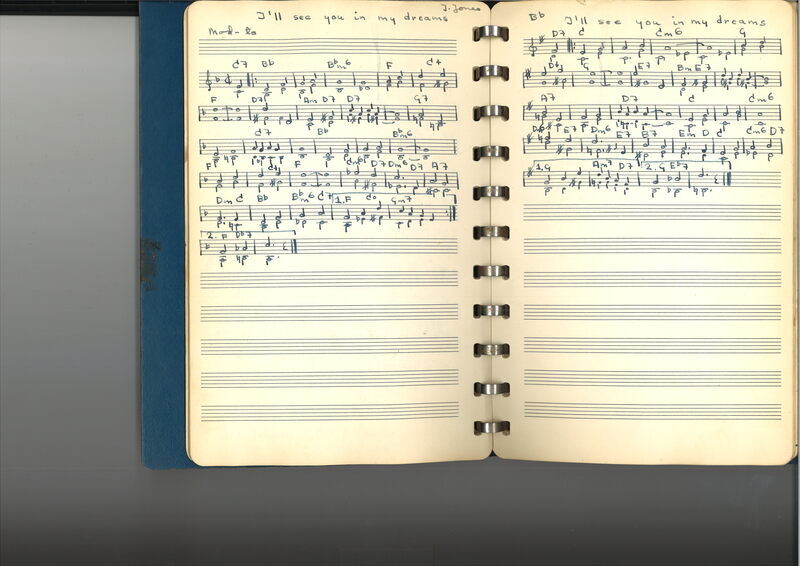 I'll see you in my dreams
J. Jones
C7 Bb Bbm6 F
F D7 Am D7 D7 G7
C7 Bb Bbm6
F F D7 Dm6 D7 A7
Dm C Bb Bbm6 C7 1. F Gm7
2. F Db7
Bb I'll see you in my dreams
D7 C Cm6 G
G E7 Bm E7
A7 D7 C Cm6
E7 Dm6 E7 E7 Em D C Cm6 D7
1. G Am7 D7 2. G Eb7